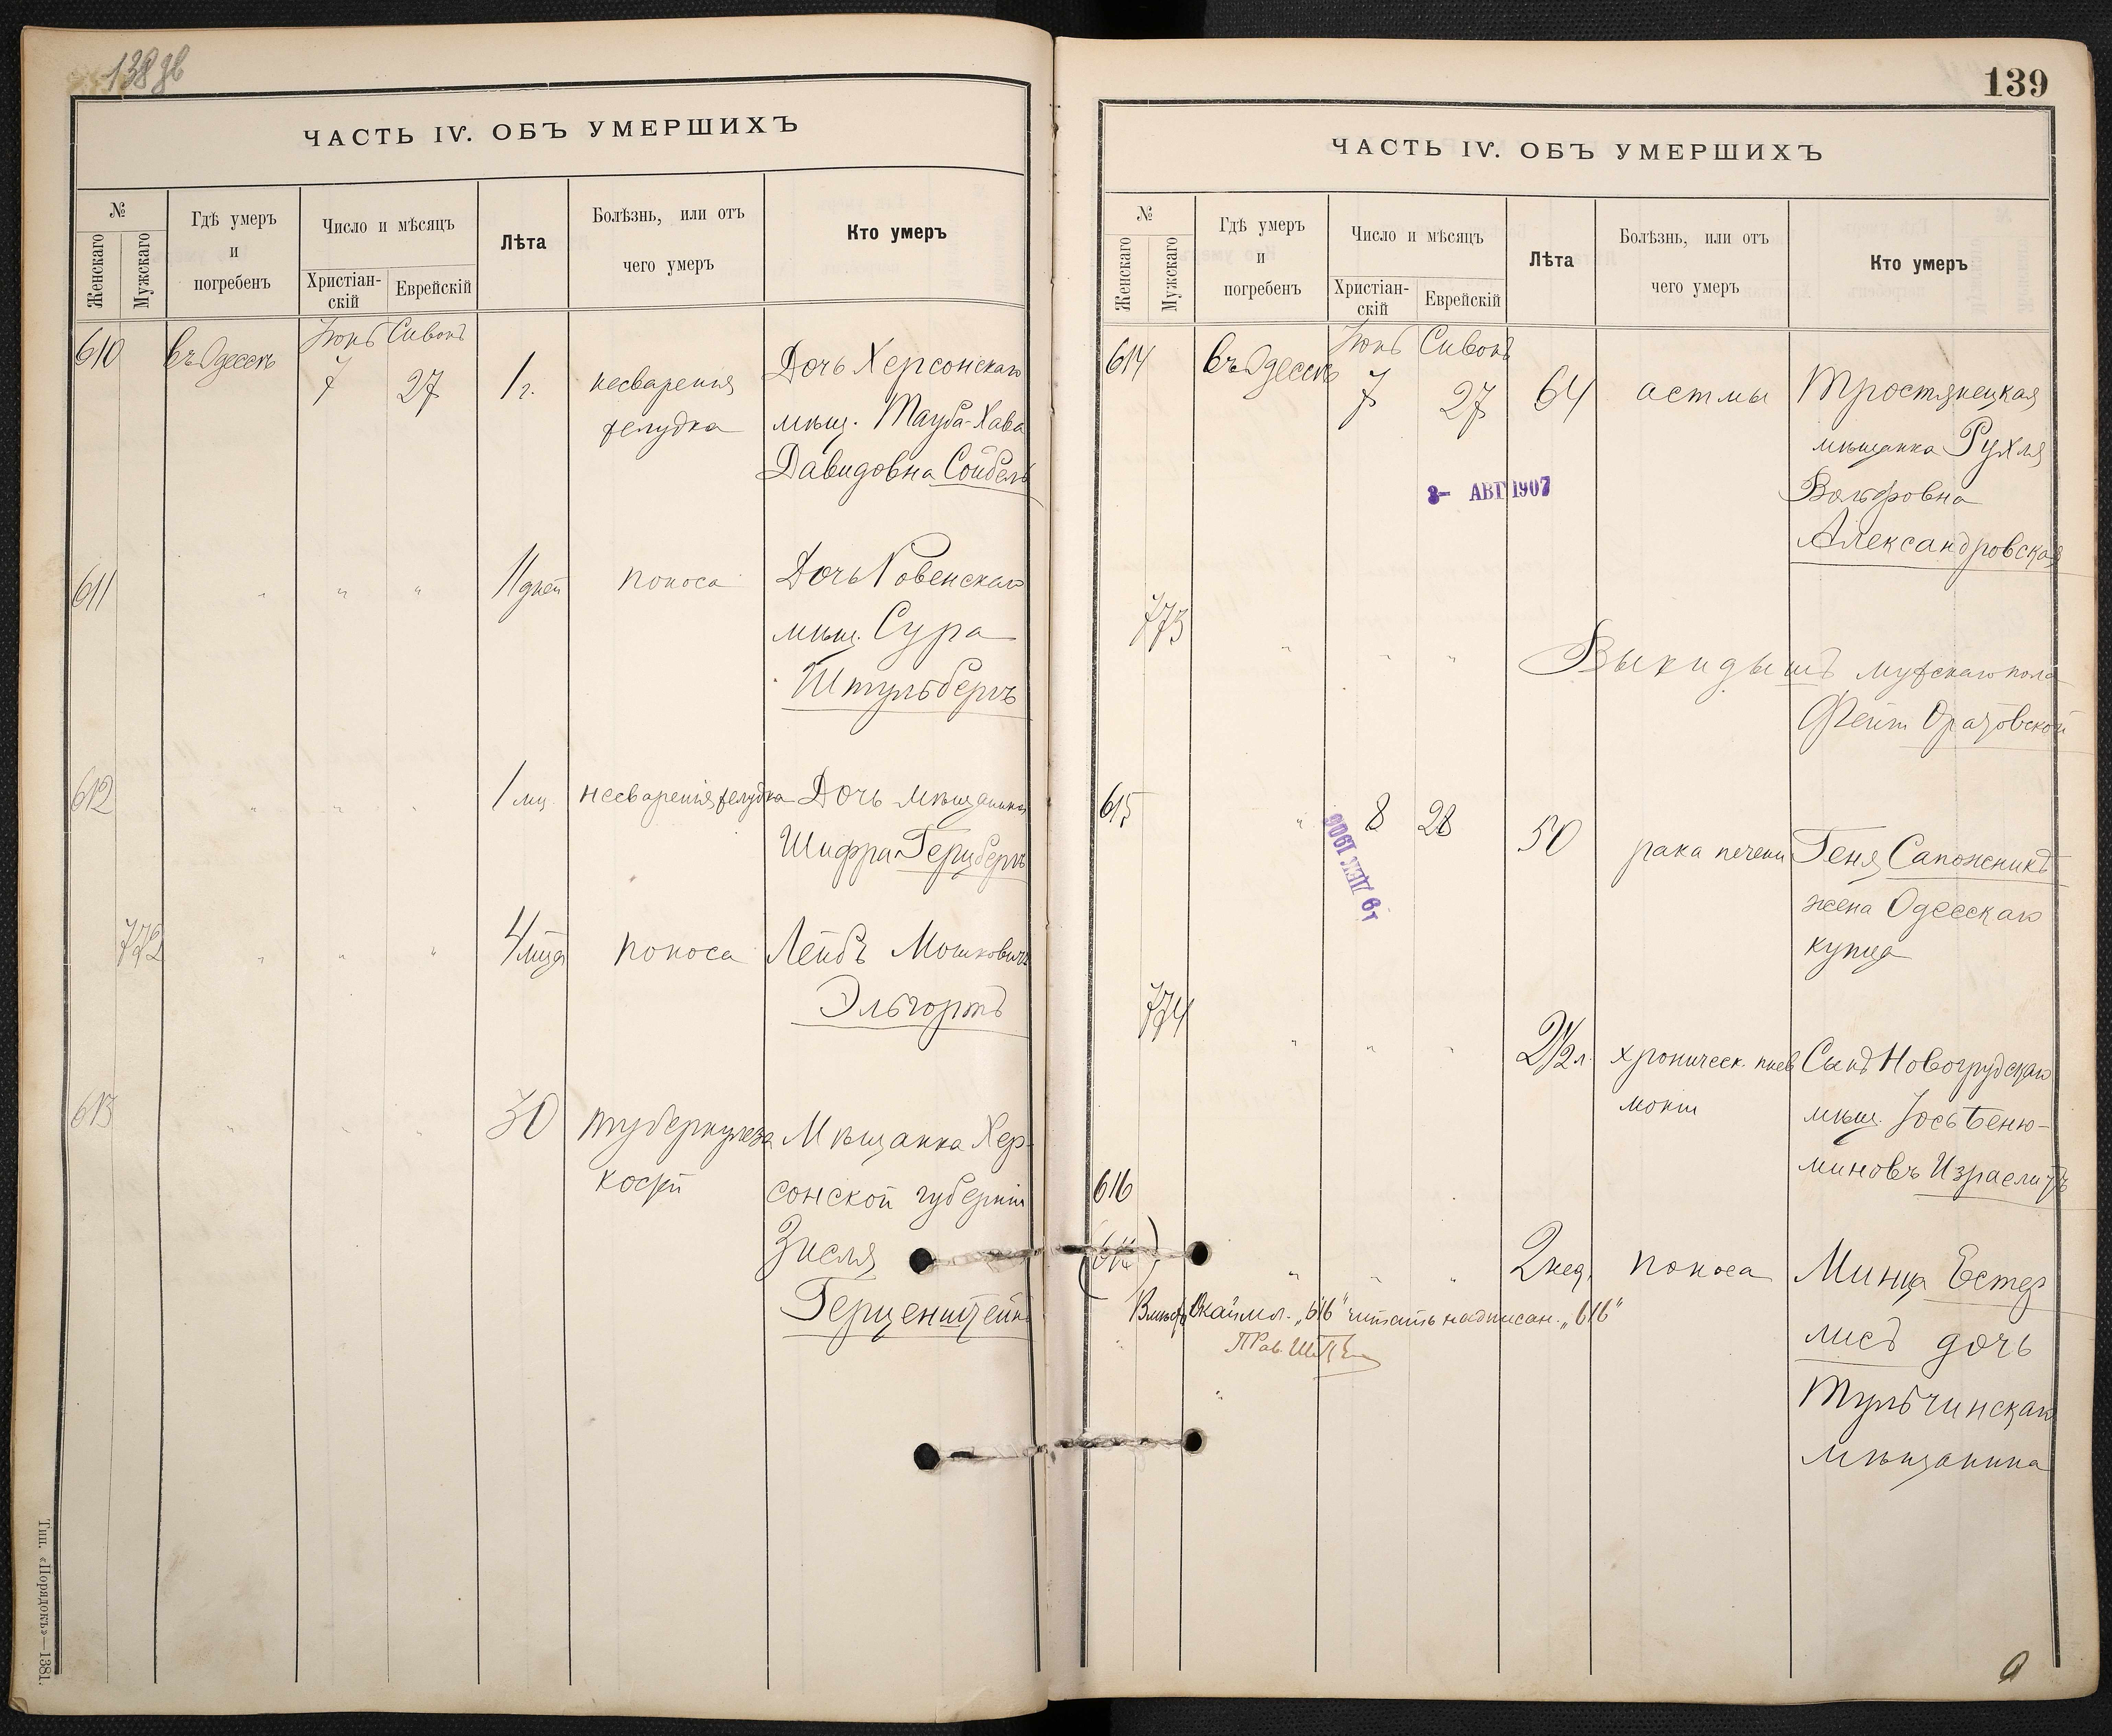 138 об
ЧАСТЬ IV. ОБЪ УМЕРШИХЪ
№
Женскаго
Мужскаго
Гдѣ умеръ
и
погребенъ
Число и мѣсяцъ
Христіан-
скій
Еврейскій
Лѣта
Болѣзнь, или отъ
чего умеръ
Кто умеръ
610 въ Одессѣ Іюнь 7 Сивонъ 27 1 г. несваренія
желудка
Дочь Херсонскаго
мѣщ. Тауба-Хава
Давидовна Сойбель
611 " " " 11 дней поноса Дочь Ровенскаго
мѣщ. Сура
Штульбергъ
612 " " " 1 мц. несваренія желудка Дочь мѣщанина
Шифра Герцбергъ
772 " " " 4 мца поноса Лейбъ Мошковичъ
Эльгортъ
613 " " " 30 туберкулеза
костей
Мѣщанка Хер-
сонской губерніи
Зисля
Герценштейнъ
Тип. «Порядокъ»—1381.
139
ЧАСТЬ IV. ОБЪ УМЕРШИХЪ
№
Женскаго
Мужскаго
Гдѣ умеръ
и
погребенъ
Число и мѣсяцъ
Христіан-
скій
Еврейскій
Лѣта
Болѣзнь, или отъ
чего умеръ
Кто умеръ
614 Въ Одессѣ Іюнь 7 Сивонъ 27 64 астмы Тростянецкая
мѣщанка Рухля
Вольфовна
Александровская
АВГ 1907
773 " " " Выкидышъ мужскаго пола
Фейги
615 " 8 28 50 рака печени Геня Сапожникъ
жена Одесскаго
купца
ДЕК 1900
774 " " " 2½ л. хроническ. пнев
моніи
Сынъ Новогрудскаго
мѣщ. Іось Беню-
миновъ Израелитъ
616
" " " 2 нед. поноса Минца Естер
лисъ дочь
Тульчинскаго
мѣщанина
Вмѣсто „616" читать надписан. „616"